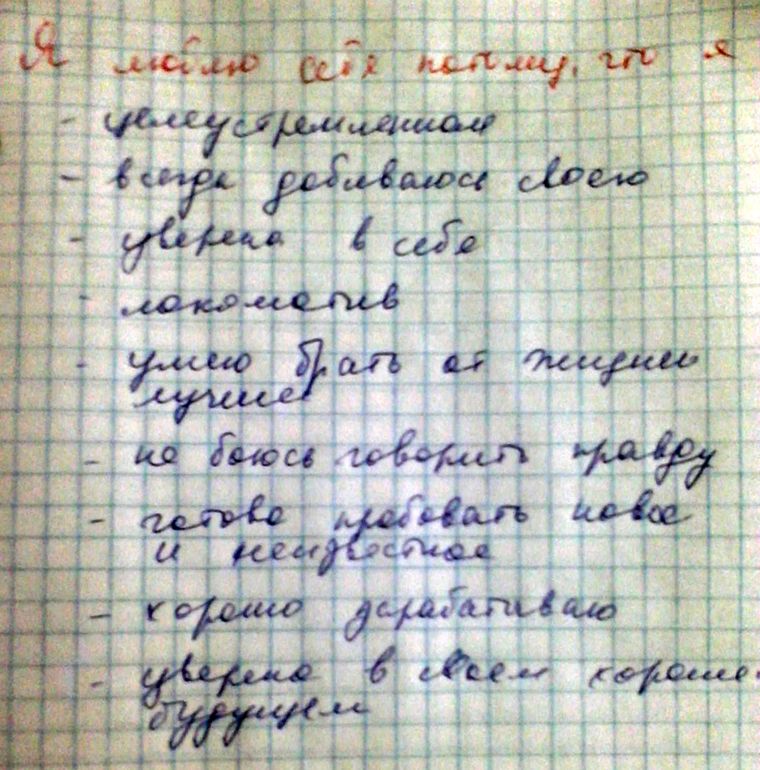 Я люблю себя потому, что я
- целеустремленная
- всегда добиваюсь своего
- уверена в себе
- локомотив
- умею брать от жизни
лучшее
- не боюсь говорить правду
- готова пробовать новое
и неизвестное
- хорошо зарабатываю
- уверена в своем хорошем
будущем